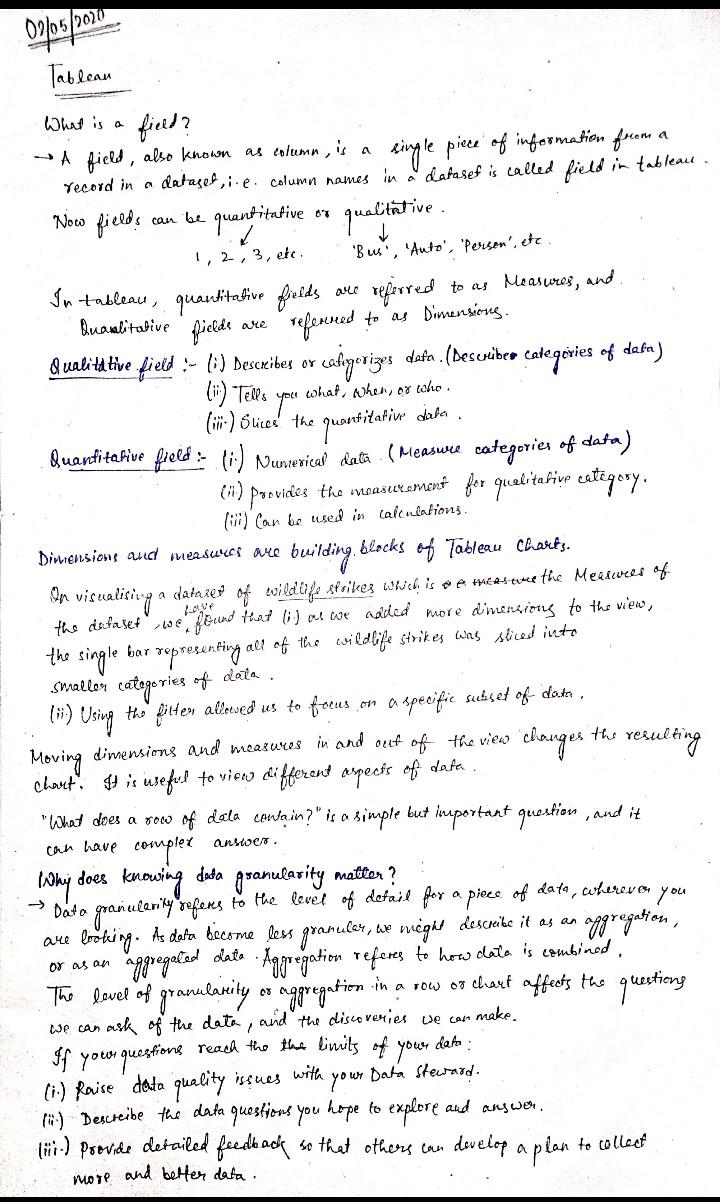 02/05/2020
Tableau
What is a field?
→ A field, also known as column, is a single piece of information from a
record in a dataset, i.e. column names in a dataset is called field in tableau.
Now fields can be quantitative or qualitative.
1, 2, 3, etc. 'Bus', 'Auto', 'Person', etc.
In tableau, quantitative fields are referred to as Measures, and
Quanlitative fields are referred to as Dimensions.
Qualitative field :- (i.) Describes or categorizes data. (Describes categories of data)
(ii.) Tells you what, when, or who.
(iii.) Slices the quantitative data.
Quantitative field :- (i.) Numerical data. (Measure categories of data)
(ii.) provides the measurement for qualitative category.
(iii) Can be used in calculations.
Dimensions and measures are building blocks of Tableau Charts.
On visualising a dataset of wildlife strikes which is a measure the Measures of
the dataset, we have found that (i.) as we added more dimensions to the view,
the single bar representing all of the wildlife strikes was sliced into
smaller categories of data.
(ii.) Using the filter allowed us to focus on a specific subset of data.
Moving dimensions and measures in and out of the view changes the resulting
chart. It is useful to view different aspects of data.
"What does a row of data contain?" is a simple but important question, and it
can have complex answer.
Why does knowing data granularity matter?
→ Data granularity refers to the level of detail for a piece of data, wherever you
are looking. As data become less granular, we might describe it as an aggregation,
or as an aggregated data. Aggregation referes to how data is combined.
The level of granularity or aggregation in a row or chart affects the questions
we can ask of the data, and the discoveries we can make.
If your questions reach the the limits of your data:
(i.) Raise data quality issues with your Data Steward.
(ii.) Describe the data questions you hope to explore and answer.
(iii.) Provide detailed feedback so that others can develop a plan to collect
more and better data.